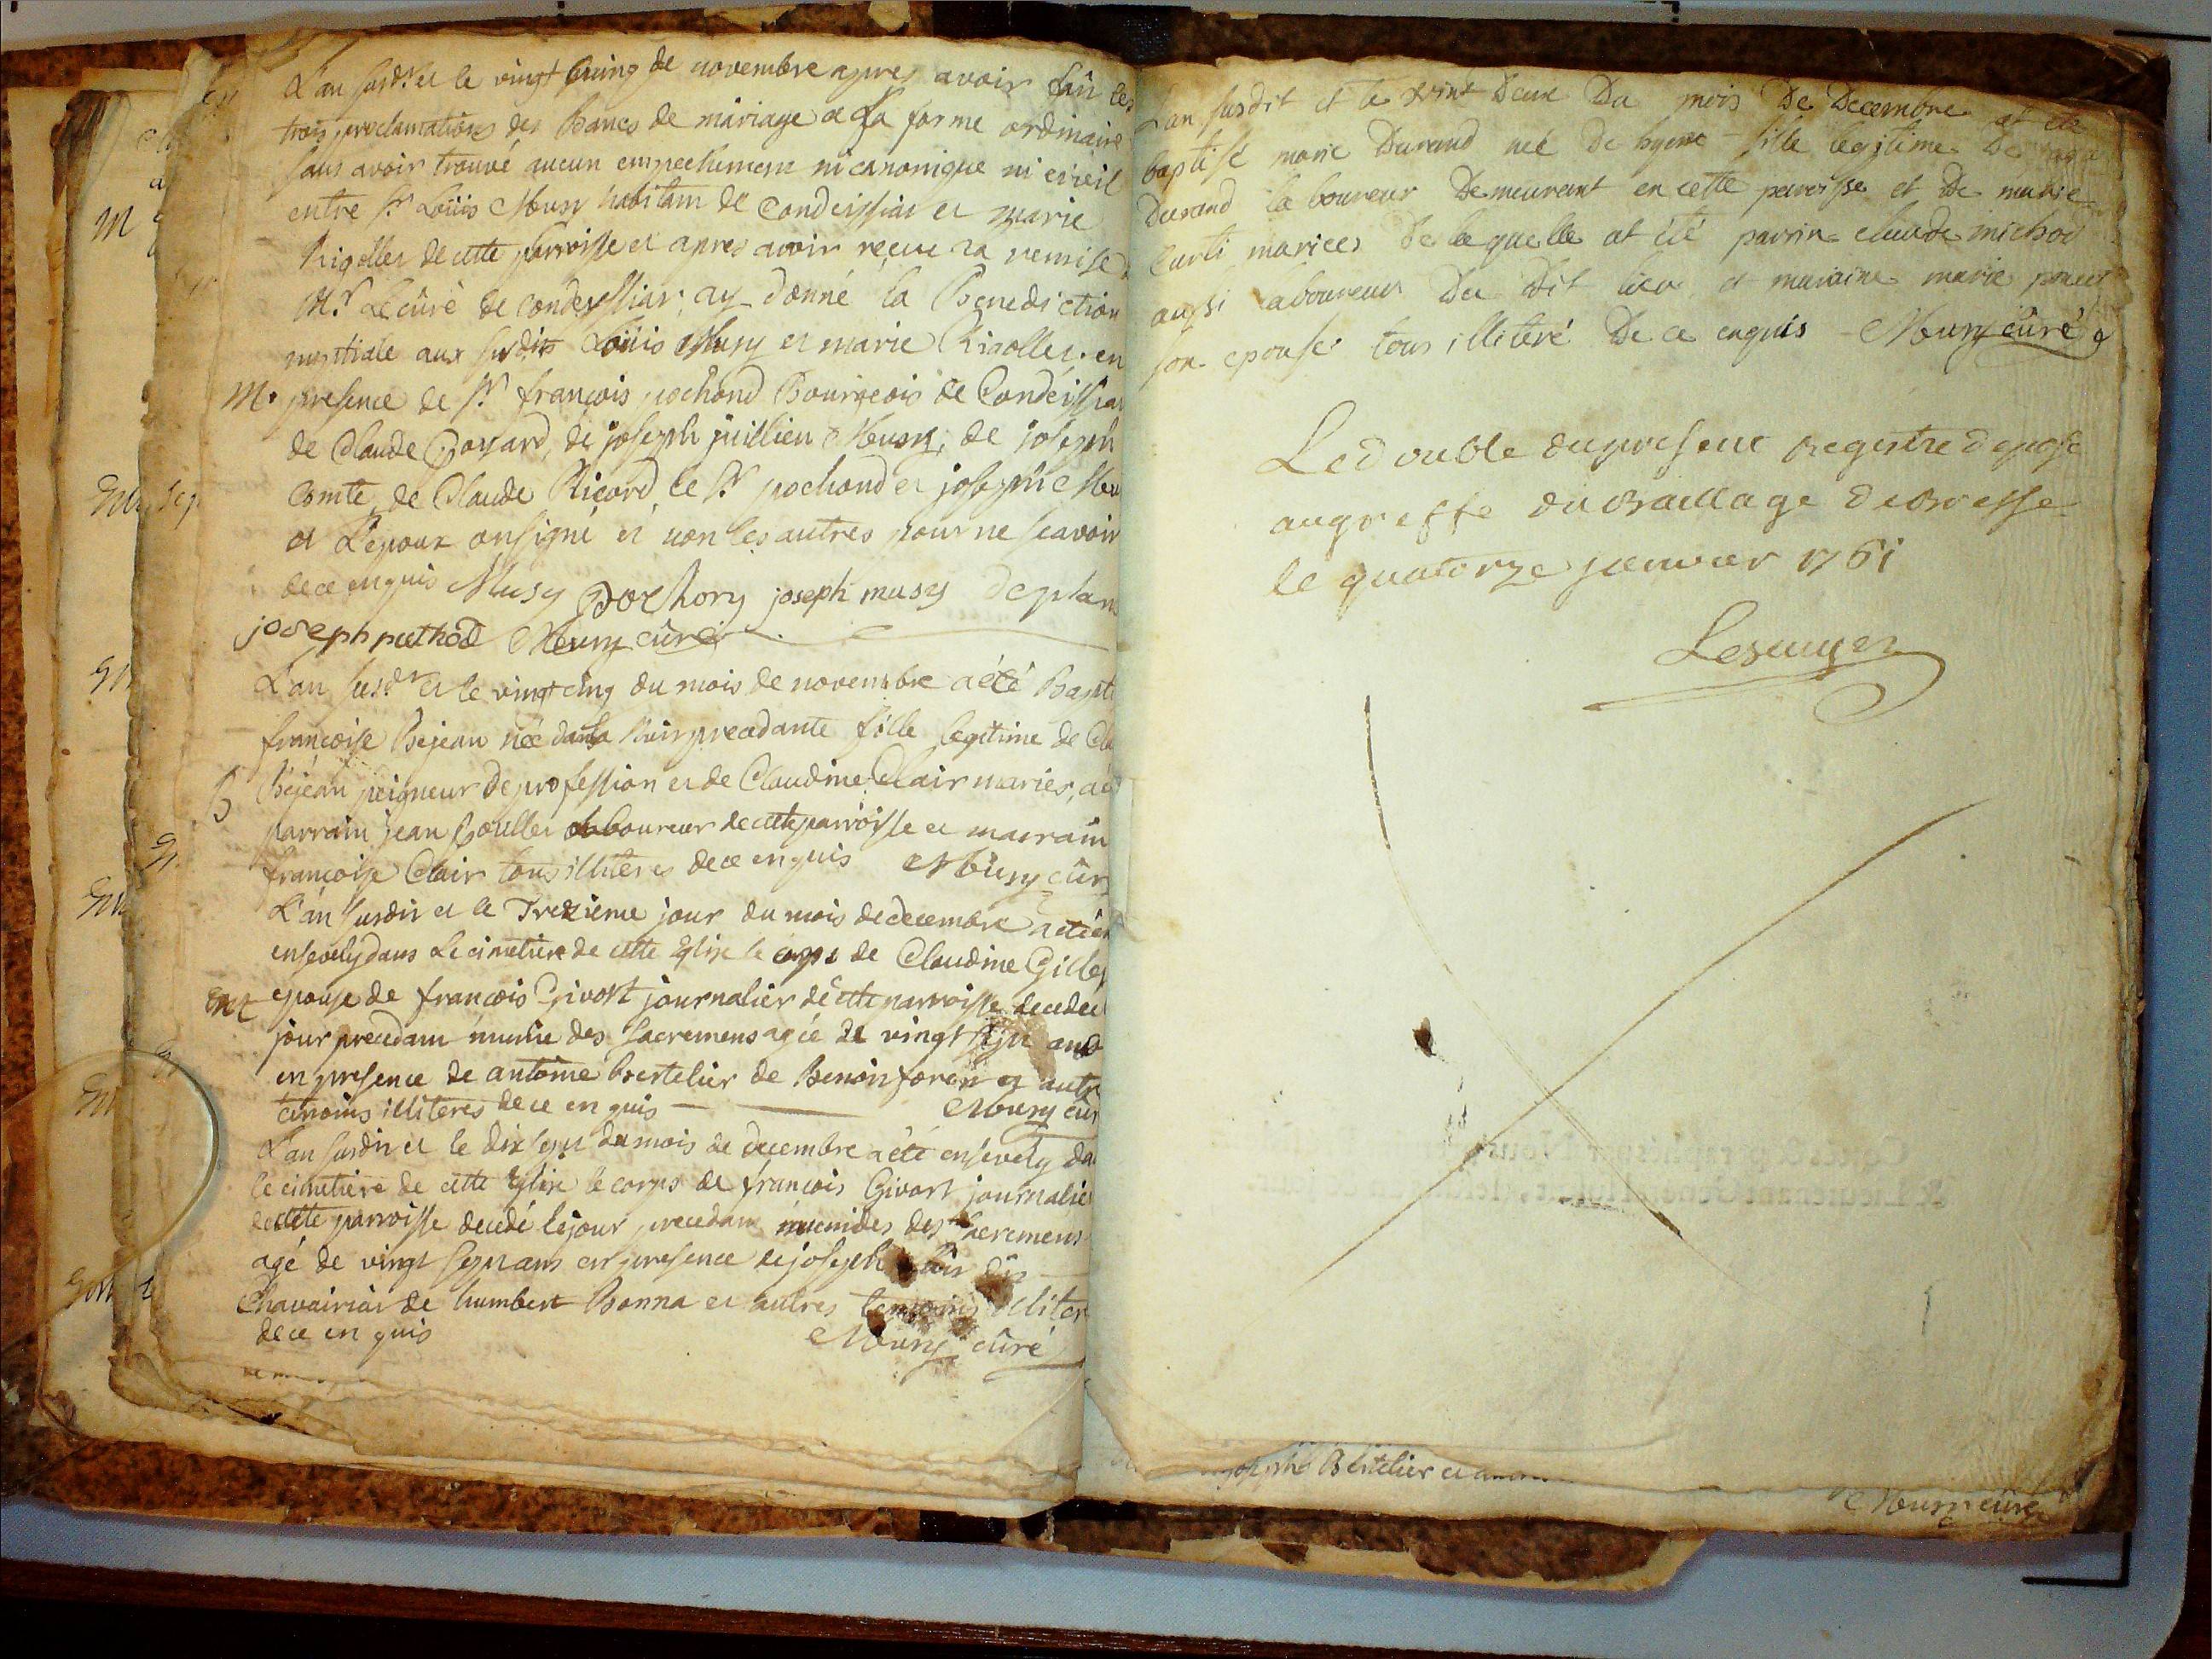 L'an susdt et le vingt cinq de novembre apres avoir fait les
trois proclamations des Bancs de mariage a la forme ordinaire
sans avoir trouvé aucun empechement ni canonique ni civil
entre sr Loüis Musy habitant de Condeissiat et marie
Rigollet de cette parroisse et apres avoir recue la remise
Mr Le curé de condeyssiat, ay donné la Benediction
nuptiale aux susdits Loüis Musy et marie Rigollet. en
M. presence de sr françois pochond Bourgeois de Condeissiat
de Claude de joseph juillien Musy, de joseph
Comte, de Claude Ricard, le sr pochond et joseph Mu
et L'epoux on signé et non les autres pour ne scavoir
de ce enquis Musy pochon joseph musy deplan
joseph puthod Musy curé
L'an susdt et le vingt cinq du mois de novembre a été Bapt
françoise Bejean née dans la nuit precedante fille legitime de Cla
B Bejean peigneur de profession et de Claudine Clair mariés, a é
parrain jean laboureur de cette parroisse et marrain
françoise Clair tous illiteres de ce enquis Musy cur
L'an susdit et le Trezieme jour du mois de decembre a été
ensevely dans Le cimetiere de cette Eglise le corps de Claudine Gillet
Mt epouse de françois Givort journalier de cette parroisse decedée
jour precedant munie des sacremens agée de vingt sept ans
en presence de antoine Bertelier de Benoit foret et autr
temoins illiteres de ce en quis Musy cur
L'an susdit et le dix sept du mois de decembre a été ensevely da
le cimetiere de cette Eglise le corps de françois Givort journalie
de cette parroisse decedé le jour precedant des sacremens
agé de vingt sept ans en presence de joseph dit
Chavairiat de humbert Bonna et autres temoins illiter
de ce en quis Musy curé
L'an susdit et le vint deux Du mois De Decembre at eté
baptisé marie Durand neé De hyere fille legitime De
Durand laboureur Demeurant en cette paroisse et De marie
Curti mariees De la quelle at été parrin claude michod
aussi laboureur Du dit lieu et maraine marie
son epouse tous illiteré De ce enquis Musy curé
Le double du present Registre deposé
au greffe du Baillage de Bresse
le quatorze janvier 1761
joseph Bertelier et
Musy curé